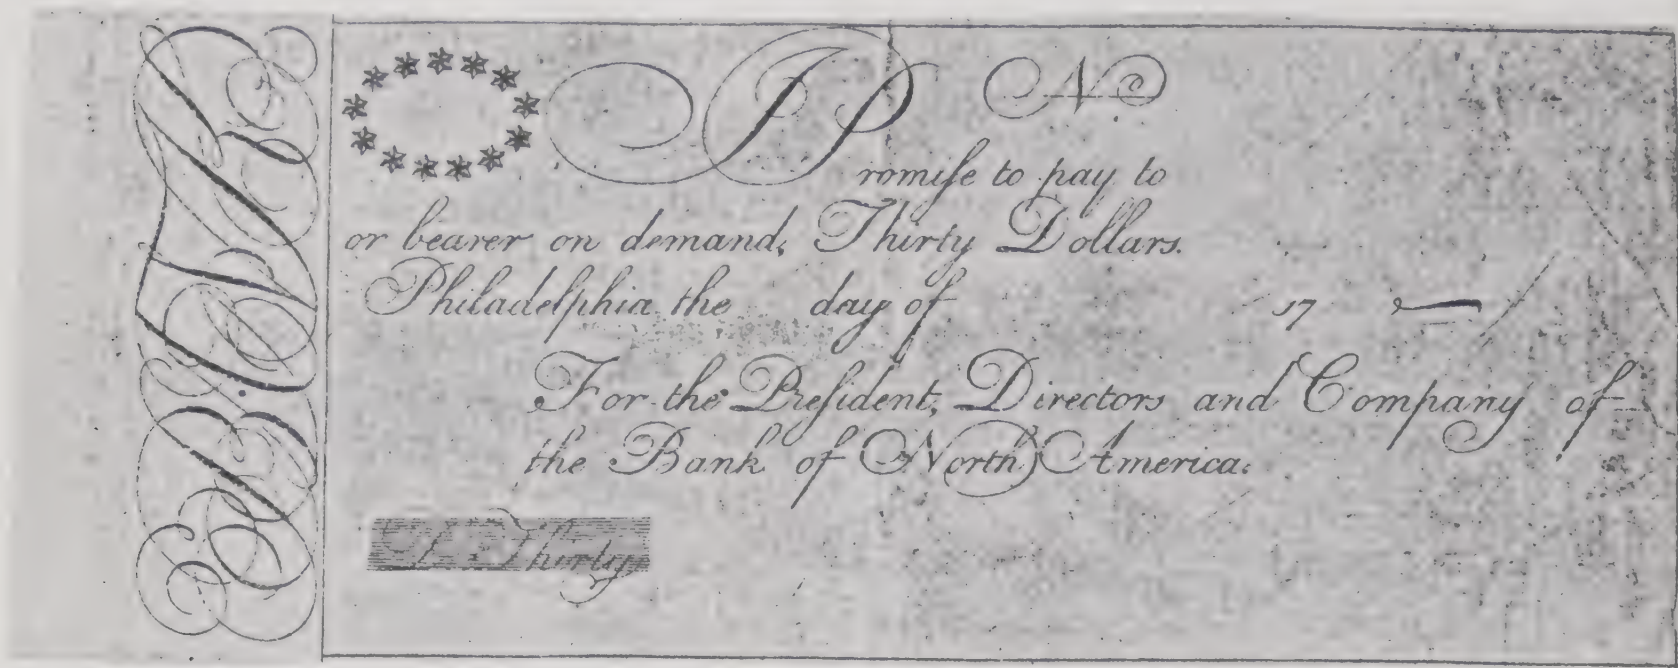 I Promiſe to pay to
No
or bearer on demand, Thirty Dollars.
Philadelphia the day of 17
For the Preſident, Directors and Company of
the Bank of North America.
Thirty